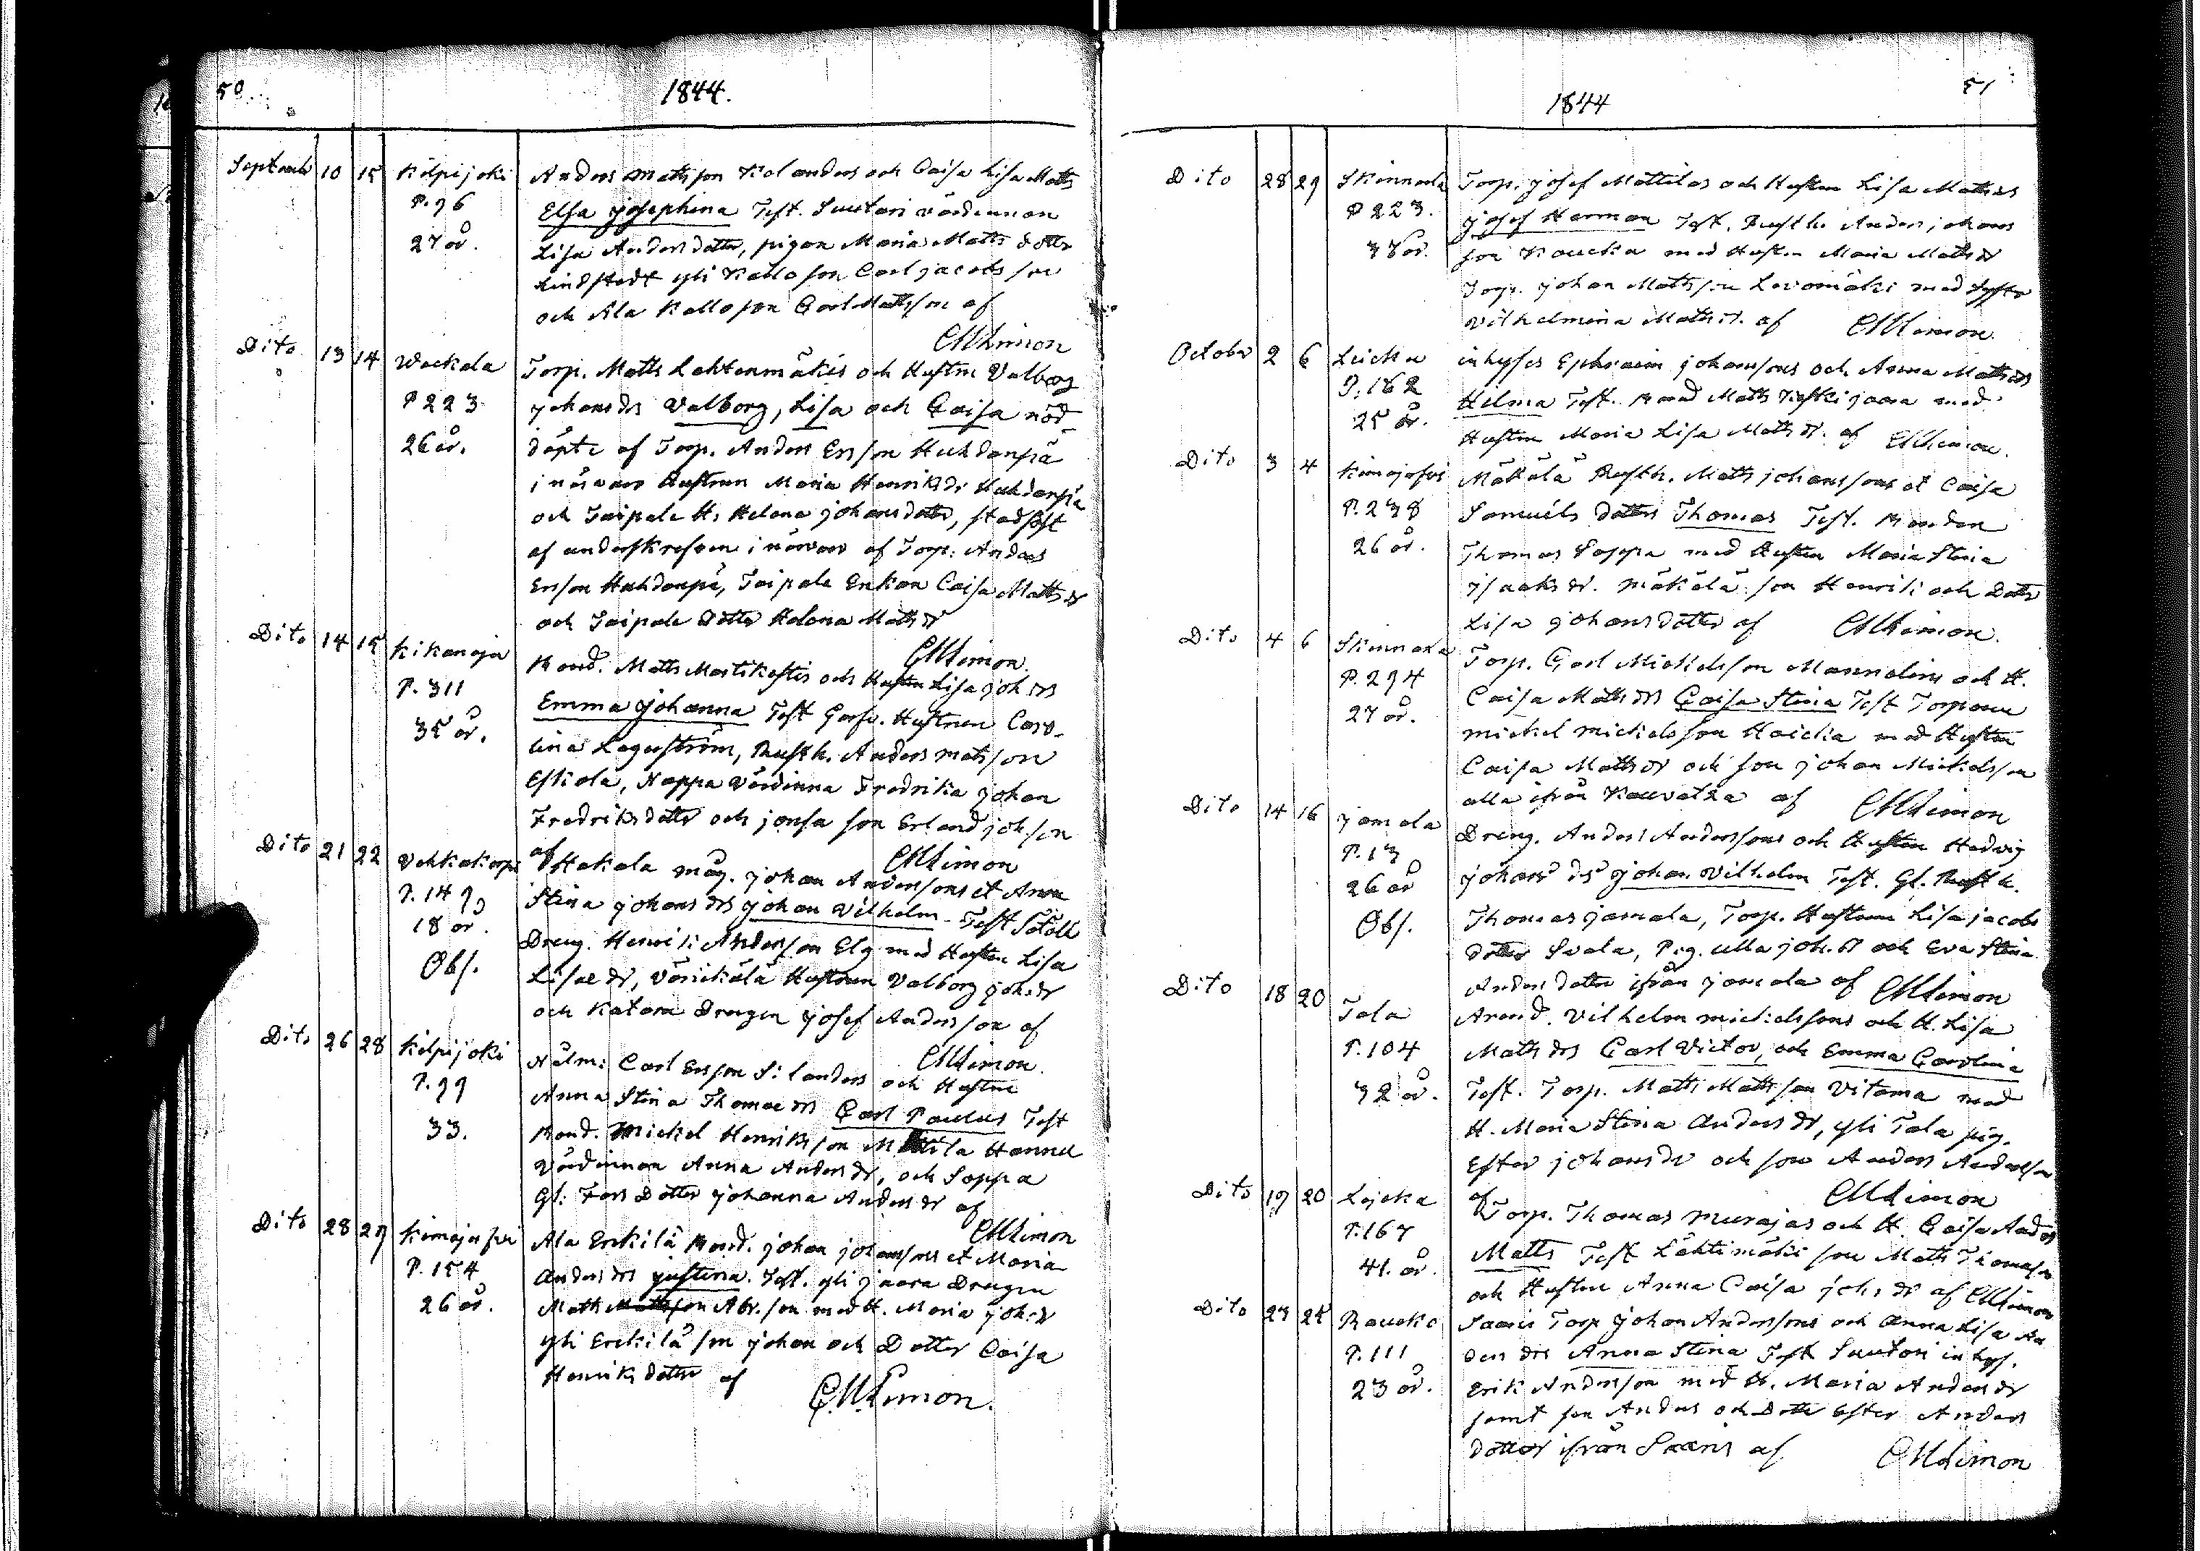 50
1844.
September 10 15 Kilpijoki Anders Matsson Kolanders och Caisa Lisa Matts
P. 96 Elsa Josephina Test. Suutari värdinnan
27 år. Lisa Anders dotter, pigan Maria Matts dotter
Lindstedt yli Kallo son Carl Jacobsson
och Ala Kallo son Carl Mattsson af
CMLimon
Dito 13 14 Wockala Torp. Matts Lehtenmäkis och Hustrun Valborg
P 223 Johans drs Valborg, Lisa och Caisa nöd-
26 år. döpte af Torp. Anders Ersson Huhdanpä
i närvaro Hustrun Maria Henriks dr Huhdanpä
och Taipale Hs Helena Johans dotter, stadfäst
af underskrefven i närvaro af Torp. Anders
Ersson Huhdanpä, Taipale Enkan Caisa Matts dr
och Taipale dotter Helena Matts dr
CMLimon.
Dito 14 15 Kikanoja Bond. Matts Martikestis och Hustrun Lisa Joh. drs
P. 311 Emma Johanna Test Hustrun Caro-
35 år. lina Lagerström, Rusth. Anders Matsson
Eskola, Noppa Värdinna Fredrika Johan
Fredriks dotter och Jonsa son Erland Johsson
af CMLimon
Dito 21 22 Vehkakorpi Hakala måg. Johan Anderssons et Anna
P. 149 Stina Johans drs Johan Vilhelm. Test
18 år. Dreng. Henrik Andersson Elg med Hustrun Lisa
Obs. Hustrun Valborg Joh. dr
och Katara Drengen Josef Andersson af
CMLimon.
Dito 26 28 Kilpijoki Carl Ersson Silanders och Hustrun
P. 99 Anna Stina Thomæ drs Carl Paulus Test
33. Bond. Mickel Henriksson Mattila Hannu
Värdinnan Anna Anders dr, och Soppa
Gl: Fars Dotter Johanna Anders dr af
CMLimon
Dito 28 29 Ala Erkilä Bond. Johan Johanssons et Maria
P. 154 Anders drs Justina. Test. yli Jaara Drengen
26 år. Matts Abr.son med H. Maria Joh. dr
yli Erkilä son Johan och Dotter Caisa
Henriks dotter af
CMLimon.
51
1844
Dito 28 29 Skinnarla Torp. Josef Mattilas och Hustrun Lisa Matts drs
P 223. Josef Herman Test. Rusth. Anders Johans
38 år. son Koucka med Hustru Maria Matts dr
Torp. Johan Matsson Levomäki med Syster
Vilhelmina Matts dr. af CMLimon.
October 2 6 Leicku inhyses Ephraim Johanssons och Anna Matts drs
P. 162 Helma Test. Bond Matts Jaara med
25 år. Hustrun Maria Lisa Matts dr. af CMLimon.
Dito 3 4 Mäkälä Rusth. Matts Johanssons et Caisa
P. 238 Samuels dotters Thomas Test. Bonden
26 år. Thomas Soppa med Hustrun Maria Stina
Isaaks dr. Mäkälä son Henrik och dotter
Lisa Johans dotter af CMLimon.
Dito 4 6 Skinnarla Torp. Carl Mickelsson Mannelins och H.
P. 294 Caisa Matts drs Caisa Stina Test Torparen
27 år. Mickel Mickelsson Haicka med Hustrun
Caisa Matts dr och son Johan Mickelsson
alla ifrån Kauvatsa af CMLimon
Dito 14 16 Jamala Dreng. Anders Anderssons och Hustrun Hedvig
P. 13 Johans drs Johan Vilhelm Test. Gl. Rusth.
26 år Thomas Jamala, Torp. Hustrun Lisa Jacobs
Obs. dotter Svala, Pig. Ulla Joh. dr och Eva Stina
Anders dotter ifrån Jamala af CMLimon
Dito 18 20 Tala Arend. Vilhelm Mickelssons och H. Lisa
P. 104 Matts drs Carl Victor, och Emma Carolina
32 år. Test. Torp. Matts Mattsson Vitama med
H. Maria Stina Anders dr, yli Tala pig.
Ester Johans dr och son Anders Andersson
af CMLimon
Dito 19 20 Lejcku Torp. Thomas Murajas och H. Caisa And. drs
P. 167 Matts Test Lähtimäki son Matts Thomasson
41. år. och Hustrun Anna Caisa Joh. dr af CMLimon
Dito 23 25 Saaris Torp Johan Anderssons och Anna Lisa An
P. 111 ders drs Anna Stina Test Suutari inhys.
23 år. Erik Andersson med H. Maria Anders dr
samt son Anders och Dotter Ester Anders
dotter ifrån Saaris af CMLimon